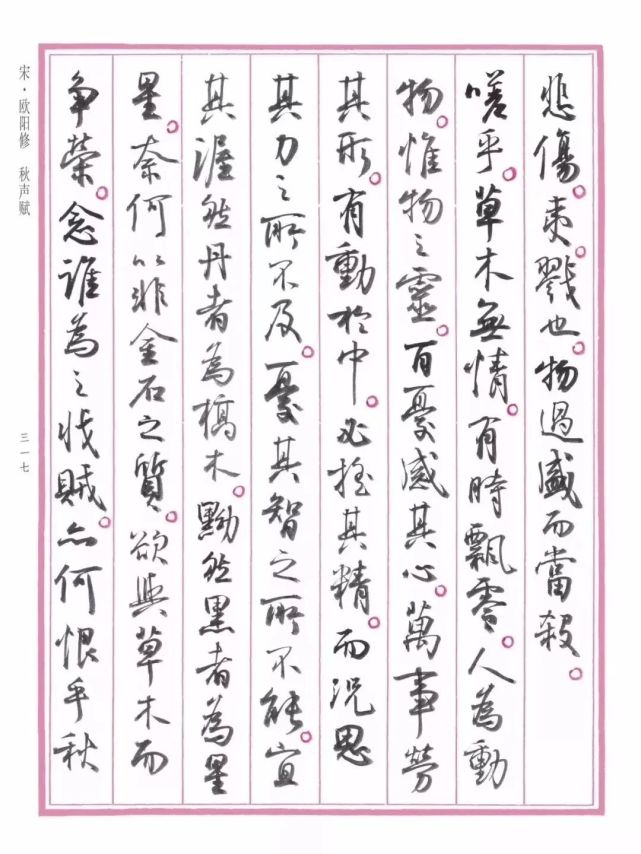 悲傷。夷戮也。物過盛而當殺。
嗟乎。草木無情。有時飄零。人為動
物。惟物之靈。百憂感其心。萬事勞
其形。有動於中。必摇其精。而況思
其力之所不及。憂其智之所不能。宜
其渥然丹者為槁木。黟然黑者為星
星。奈何以非金石之質。欲與草木而
争榮。念誰為之戕賊。亦何恨乎秋
宋·欧阳修 秋声赋
三一七